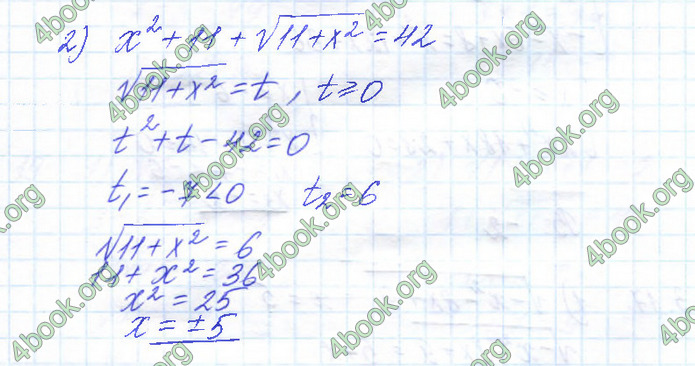 2) x² + 11 + √(11+x²) = 42
√(11+x²) = t, t ≥ 0
t² + t - 42 = 0
t₁ = -7 < 0 t₂ = 6
√(11+x²) = 6
11 + x² = 36
x² = 25
x = ±5
4book.org
4book.org
4book.org
4book.org
4book.org
4book.org
4book.org
4book.org
4book.org
4book.org
4book.org